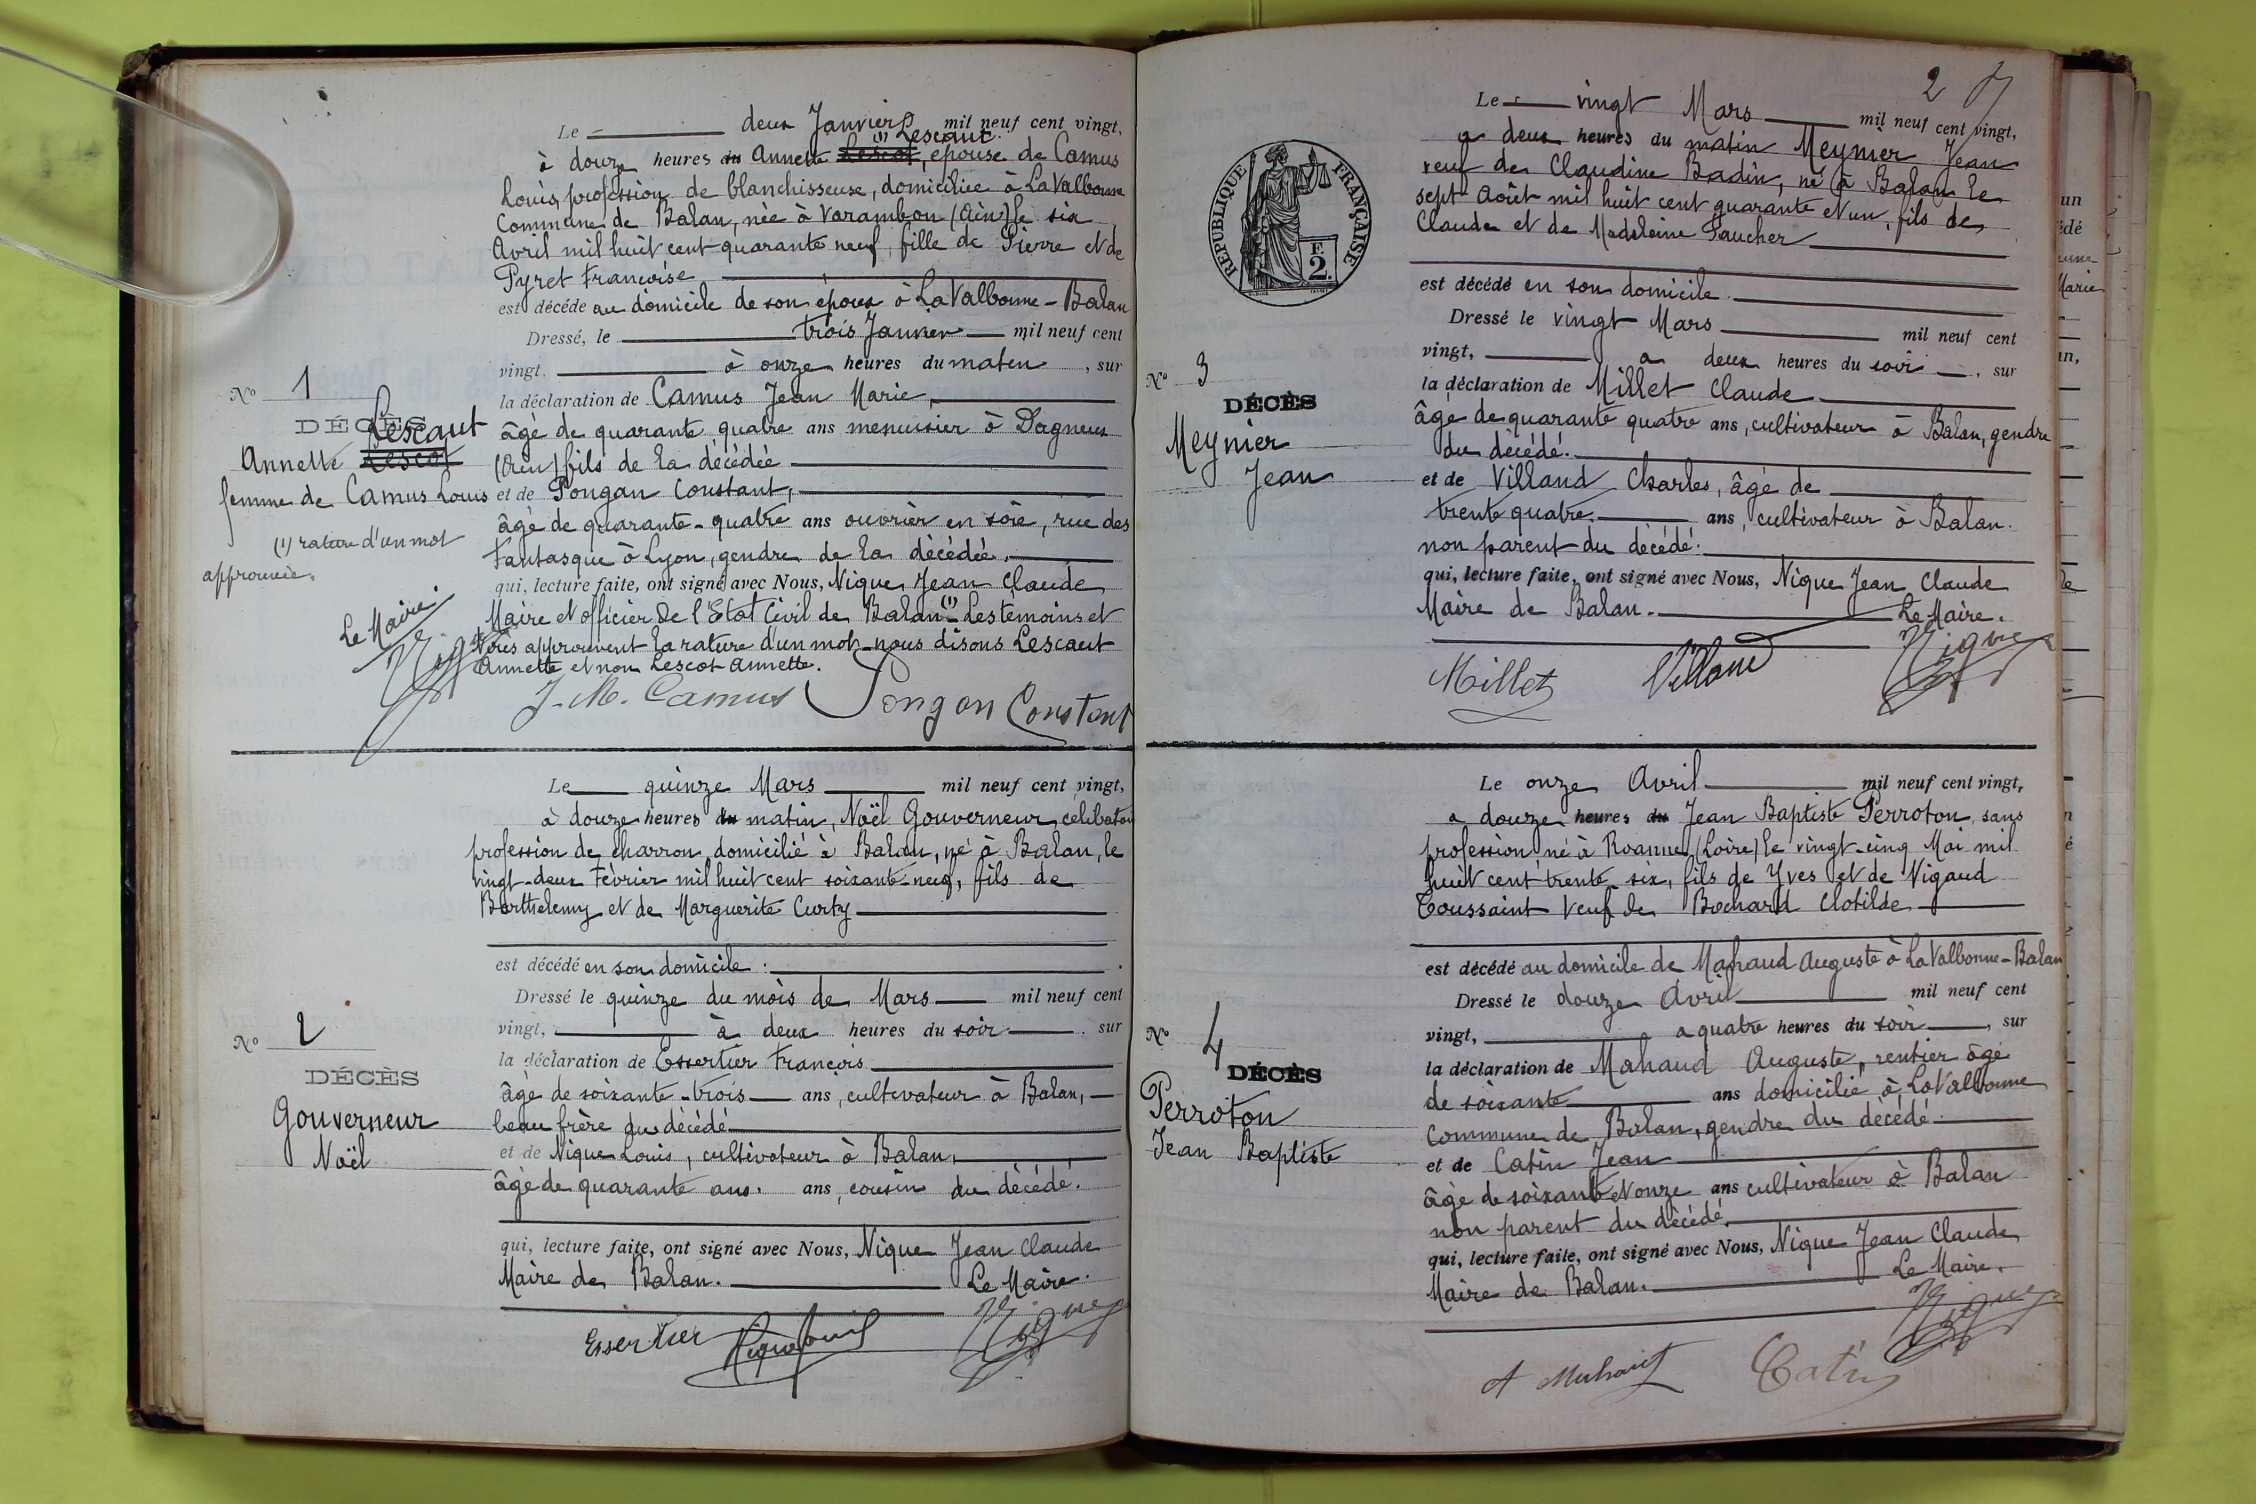 Le deux Janvier mil neuf cent vingt,
(1) Lescaut
à douze heures du Annette Lescot, épouse de Camus
Louis, profession de blanchisseuse, domiciliée à LaValbonne
Commune de Balan, née à Varambon (Ain) le six
Avril mil huit cent quarante neuf, fille de Pierre et de
Pyret Françoise
est décédé au domicile de son époux à LaValbonne - Balan
Dressé, le trois Janvier mil neuf cent
vingt, à onze heures du matin, sur
la déclaration de Camus Jean Marie,
âgé de quarante quatre ans menuisier à Dagneux
(Ain) fils de la décédée
et de Pongan Constant,
âgé de quarante-quatre ans ouvrier en soie, rue des
Fantasque à Lyon, gendre de la décédée.
qui, lecture faite, ont signé avec Nous, Nique Jean Claude
Maire et officier de l'Etat Civil de Balan (1) Les témoins et
Nous approuvent la rature d'un mot - nous disons Lescaut
Annette et non Lescot Annette.
J. M. Camus Pongan Constant
No 1
DÉCÈS
Lescaut
Annette Lescot
femme de Camus Louis
(1) rature d'un mot
approuvée.
Le Maire.
Nique
Le quinze Mars mil neuf cent vingt,
à douze heures du matin, Noël Gouverneur, célibataire
profession de charron domicilié à Balan, né à Balan, le
vingt-deux Février mil huit cent soixante-neuf, fils de
Barthelemy et de Marguerite Curty
est décédé en son domicile.
Dressé le quinze du mois de Mars mil neuf cent
vingt, à deux heures du soir, sur
la déclaration de Essertier François
âgé de soixante-trois ans, cultivateur à Balan,
beau frère du décédé
et de Nique Louis, cultivateur à Balan,
âgé de quarante ans. ans, cousin du décédé.
qui, lecture faite, ont signé avec Nous, Nique Jean Claude
Maire de Balan. Le Maire.
Essertier Nique Louis Nique
No 2
DÉCÈS
Gouverneur
Noël
2
Le vingt Mars mil neuf cent vingt,
a deux heures du matin Meynier Jean
veuf de Claudine Badin, né à Balan le
sept Août mil huit cent quarante et un, fils de
Claude et de Madeleine Faucher
est décédé en son domicile.
Dressé le vingt Mars mil neuf cent
vingt, a deux heures du soir, sur
la déclaration de Millet Claude
âgé de quarante quatre ans, cultivateur à Balan, gendre
du décédé.
et de Villand Charles, âgé de
trente quatre ans, cultivateur à Balan.
non parent du décédé.
qui, lecture faite, ont signé avec Nous, Nique Jean Claude
Maire de Balan. Le Maire.
Millet Villand Nique
RÉPUBLIQUE FRANÇAISE
F.
2.
No 3
DÉCÈS
Meynier
Jean
Le onze Avril mil neuf cent vingt,
a douze heures du Jean Baptiste Perroton, sans
profession né à Roanne (Loire) le vingt-cinq Mai mil
huit cent trente-six, fils de Yves et de Vigaud
Toussaint veuf de Bochard Clotilde
est décédé au domicile de Mahaud Auguste à LaValbonne-Balan
Dressé le douze Avril mil neuf cent
vingt, a quatre heures du soir, sur
la déclaration de Mahaud Auguste, rentier âgé
de soixante ans domicilié à LaValbonne
Commune de Balan, gendre du décédé
et de Catin Jean
âgé de soixante et onze ans cultivateur à Balan
non parent du décédé.
qui, lecture faite, ont signé avec Nous, Nique Jean Claude
Maire de Balan. Le Maire.
Nique
A Mahaud Catin
No 4
DÉCÈS
Perroton
Jean Baptiste
un
Marie